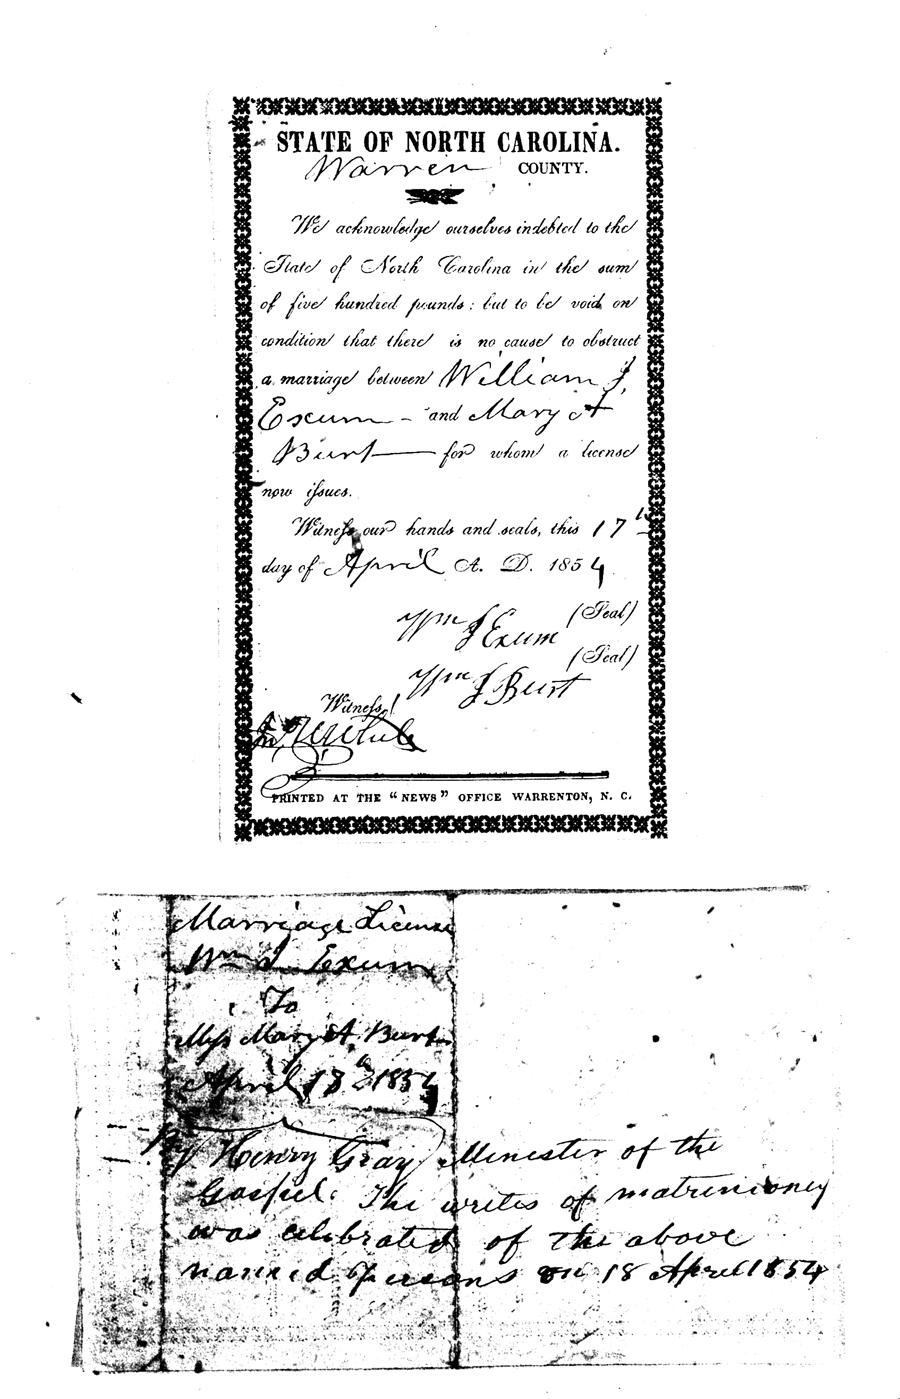 STATE OF NORTH CAROLINA.
Warren COUNTY.
We acknowledge ourselves indebted to the
State of North Carolina in the sum
of five hundred pounds; but to be void on
condition that there is no cause to obstruct
a marriage between William J.
Exum - and Mary A
Burt for whom a license
now issues.
Witness our hands and seals, this 17th
day of April A. D. 1854
(Seal)
Wm J Exum
(Seal)
Wm J Burt
Witness,
Jno W White
PRINTED AT THE "NEWS" OFFICE WARRENTON, N. C.
Marriage License
Wm J Exum
To
Miss Mary A. Burt
April 17th 1854
By Henry Gray Minester of the
Gospel. The writes of matrimoney
was celebrated of the above
named persons on 18 April 1854